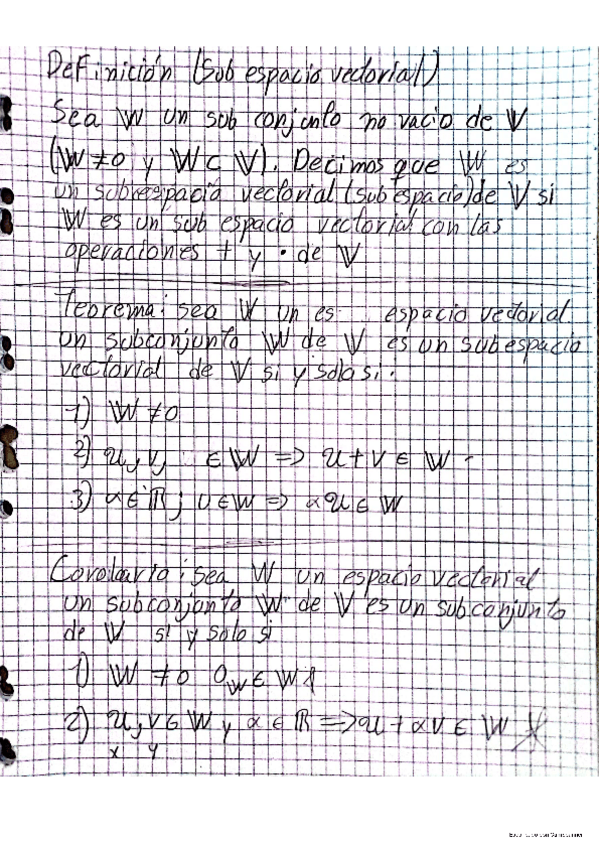 Definición (Sub espacio vectorial)
Sea W un sub conjunto no vacio de V
(W ≠ 0 y W ⊂ V). Decimos que W es
un subespacio vectorial (sub espacio) de V si
W es un sub espacio vectorial con las
operaciones + y · de V
Teorema: sea W un es espacio vectorial
un subconjunto W de V es un subespacio
vectorial de V si y solo si.
1) W ≠ 0
2) u, v, ∈ W => u + v ∈ W
3) α ∈ ℝ ; U ∈ W => αu ∈ W
Corolario: sea W un espacio vectorial
un subconjunto W de V es un subconjunto
de V si y solo si
1) W ≠ 0 0_W ∈ W
2) u, v ∈ W y α ∈ ℝ => u + αv ∈ W
x y